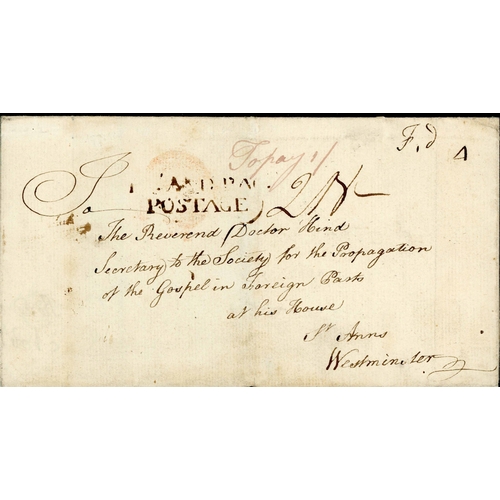 F,d
Topay 1/
To
POSTAGE
The Reverend Doctor Hind
Secretary to the Society for the Propagation
of the Gospel in Foreign Parts
at his House
St Anns
Westminster